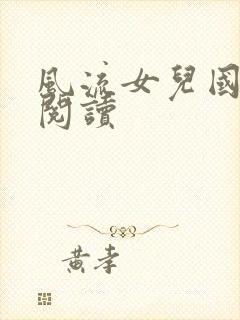 風流女兒國
閱讀
黃孝